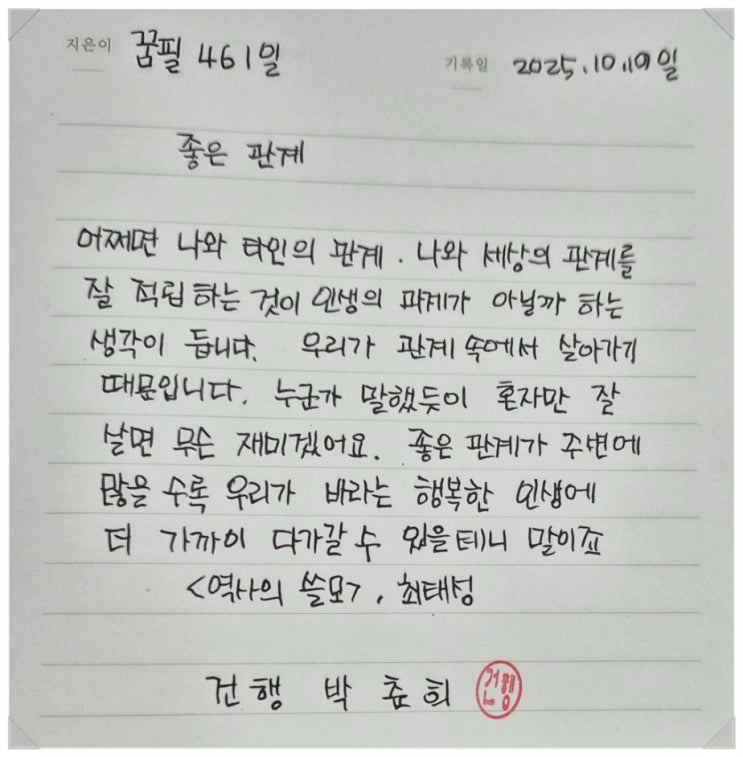 지은이 꿈필 461일
기록일 2025.10.19일
좋은 관계
어쩌면 나와 타인의 관계. 나와 세상의 관계를
잘 적립하는 것이 인생의 과제가 아닐까 하는
생각이 듭니다. 우리가 관계 속에서 살아가기
때문입니다. 누군가 말했듯이 혼자만 잘
살면 무슨 재미겠어요. 좋은 관계가 주변에
많을 수록 우리가 바라는 행복한 인생에
더 가까이 다가갈 수 있을테니 말이죠
<역사의 쓸모>, 최태성
건행 박춘희
건행